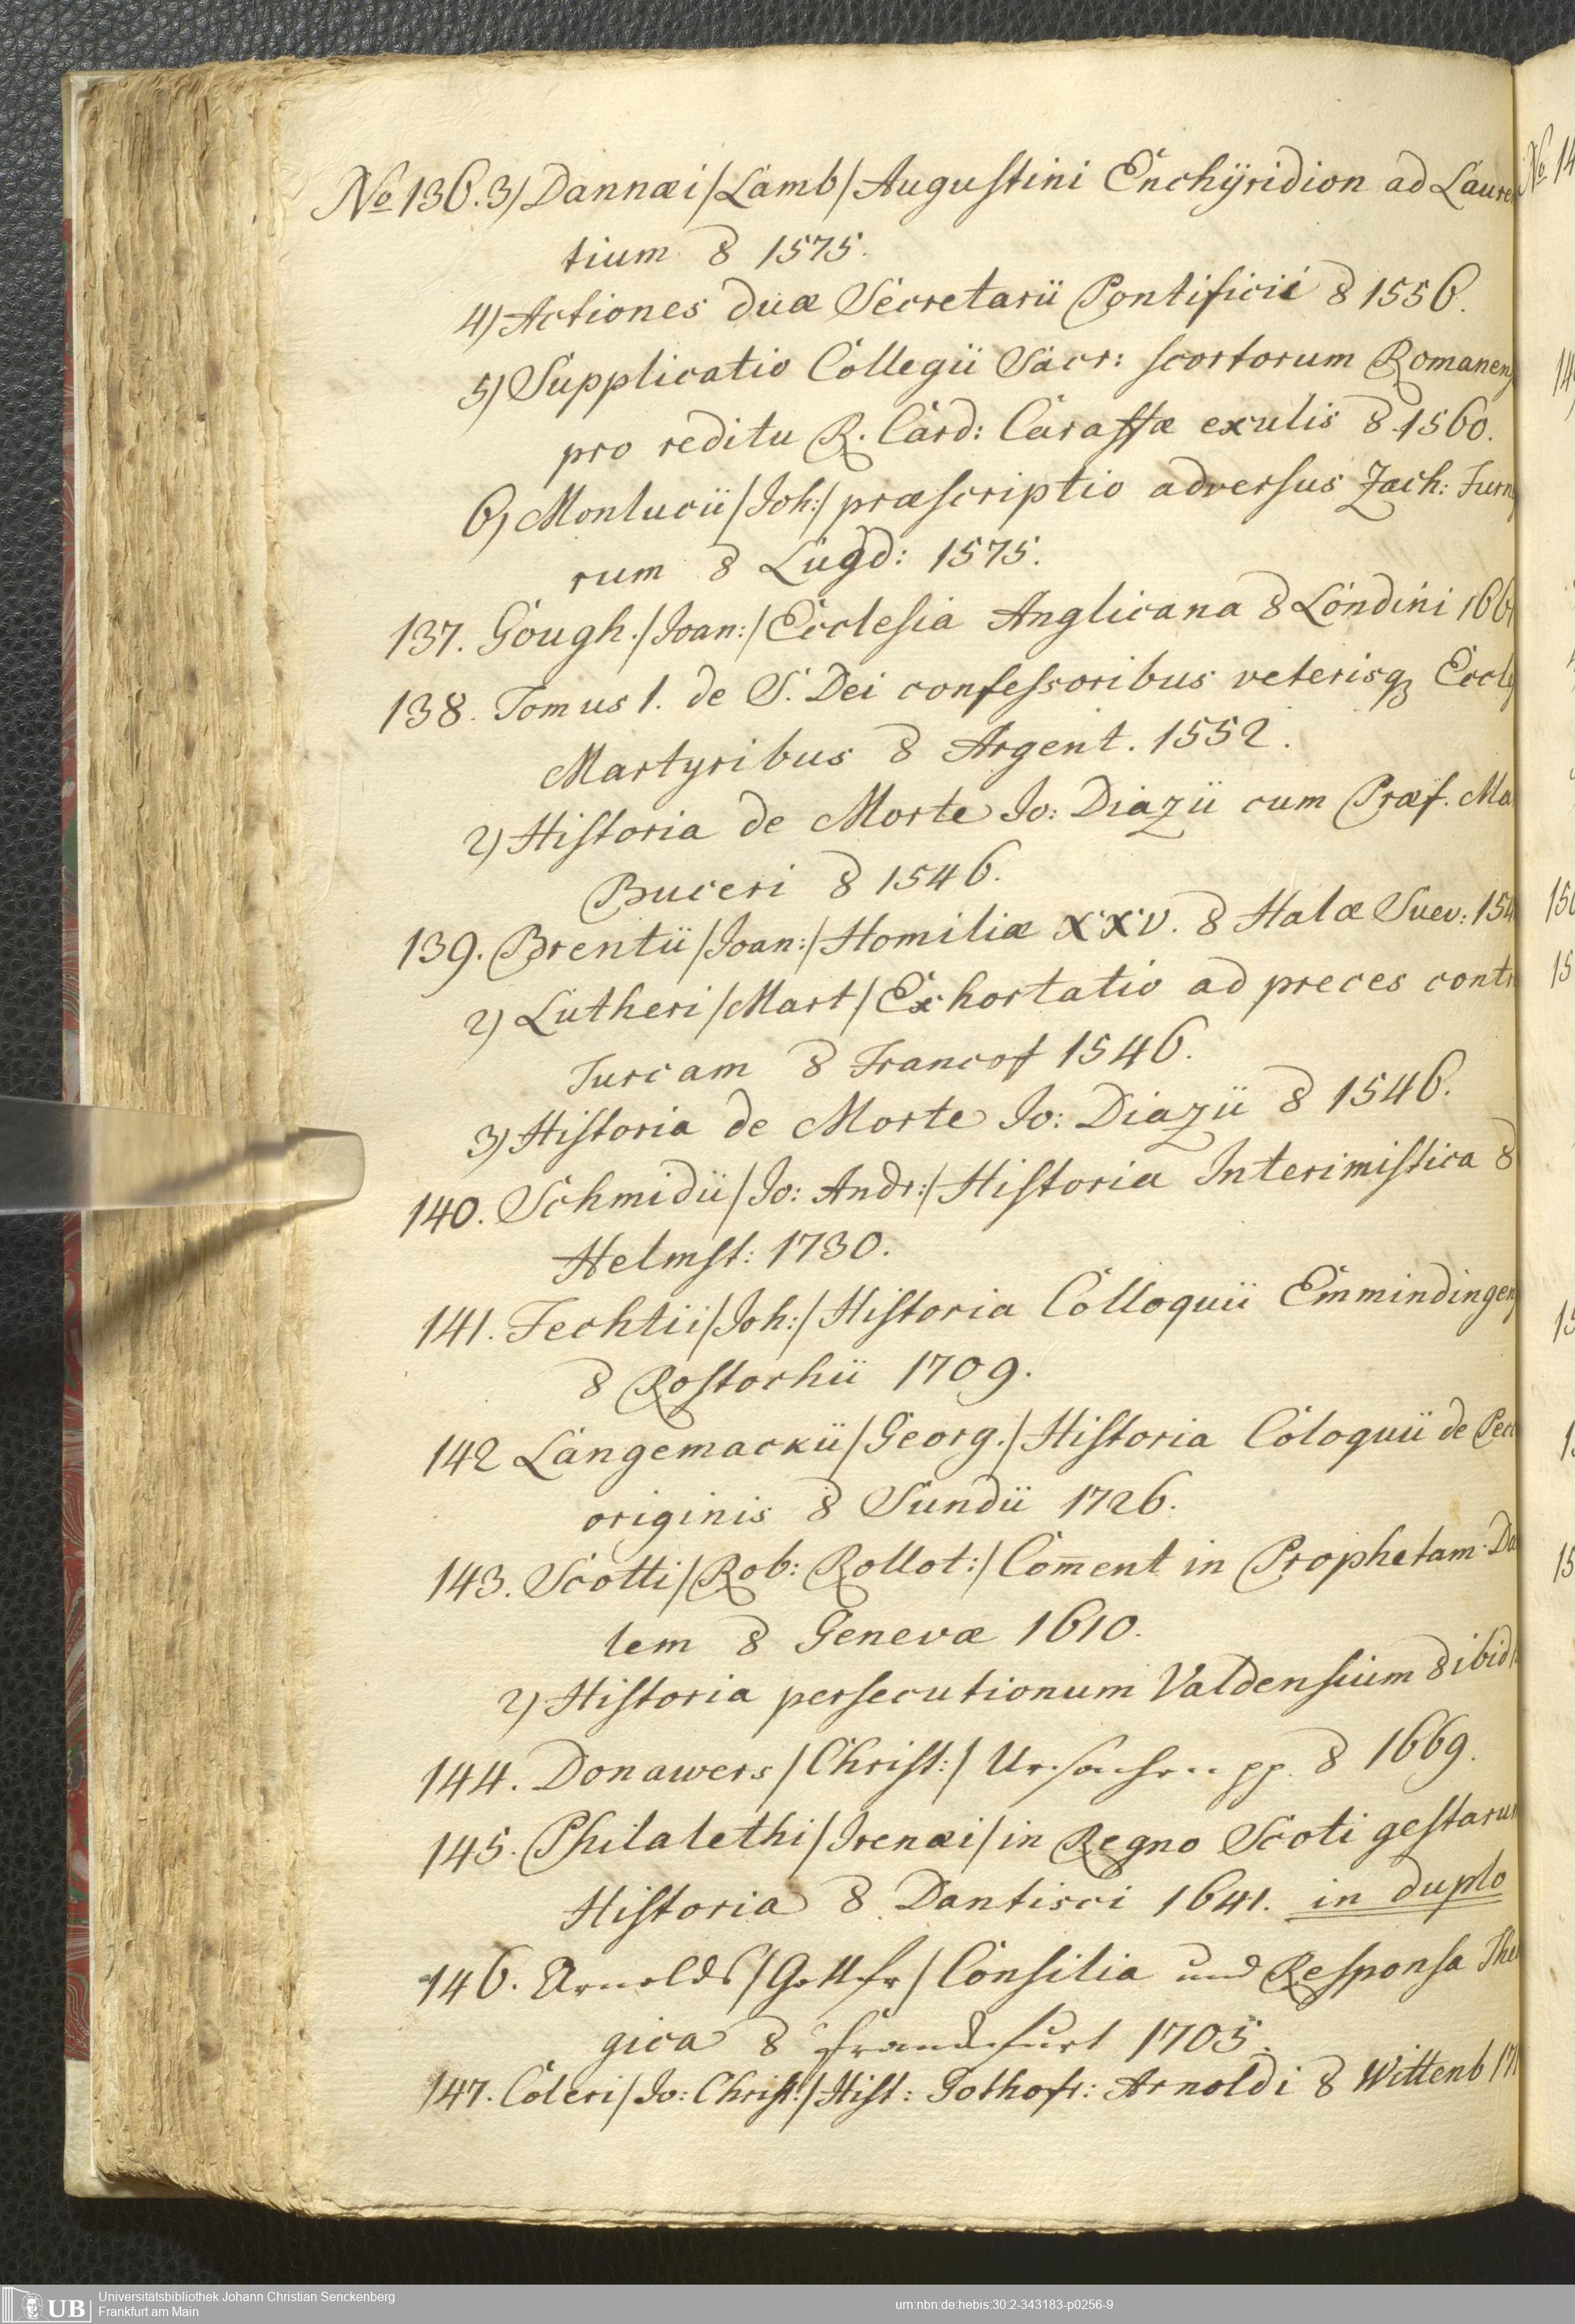 No 136. 3) Dannæi /Lamb/ Augustini Enchÿridion ad Lauren
tium 8 1575.
4) Actiones duæ Secretarii Pontificii 8 1556.
5) Supplicatio Collegii Sacr: scortorum Romanens
pro reditu R. Card: Caraffæ exulis 8 1560.
6) Monlucii /Joh:/ præscriptio adversus Zach: Furne
rum 8 Lugd: 1575.
137. Gough. /Joan:/ Ecclesia Anglicana 8 Londini
138. Tomus 1. de S. Dei confessoribus veterisq3 Eccles
Martyribus 8 Argent. 1552.
2) Historia de Morte Jo: Diazii cum Præf. Ma
Buceri 8 1546.
139. Brentii /Joan:/ Homiliæ XXV. 8 Halæ Suev: 154
2) Lutheri /Mart/ Exhortatio ad preces contr
Turcam 8 Francof 1546.
3) Historia de Morte Jo: Diazii 8 1546.
140. Schmidii /Jo: Andr:/ Historia Interimistica 8
Helmst: 1730.
141. Fechtii /Joh:/ Historia Colloquii Emmindingens
8 Rostochii 1709.
142 Langemackii /Georg./ Historia Coloquii de Pecc
originis 8 Sundii 1726.
143. Scotti /Rob: Rollot:/ Com̄ent in Prophetam Da
lem 8 Genevæ 1610.
2) Historia persecutionum Valdensium 8 ibid
144. Donawers /Christ:/ Ursachen pp. 8 1669.
145. Philalethi /Irenæi/ in Regno Scoti gestarum
Historia 8 Dantisci 1641. in duplo
146. Arnolds /Gottfr/ Consilia und Responsa Theo
gica 8 Franckfurt 1705.
147. Coleri /Jo: Christ:/ Hist: Gothofr: Arnoldi 8 Wittenb 17
No 14
14
150
15
15
1
15
UB
Universitätsbibliothek Johann Christian Senckenberg
Frankfurt am Main
urn:nbn:de:hebis:30:2-343183-p0256-9